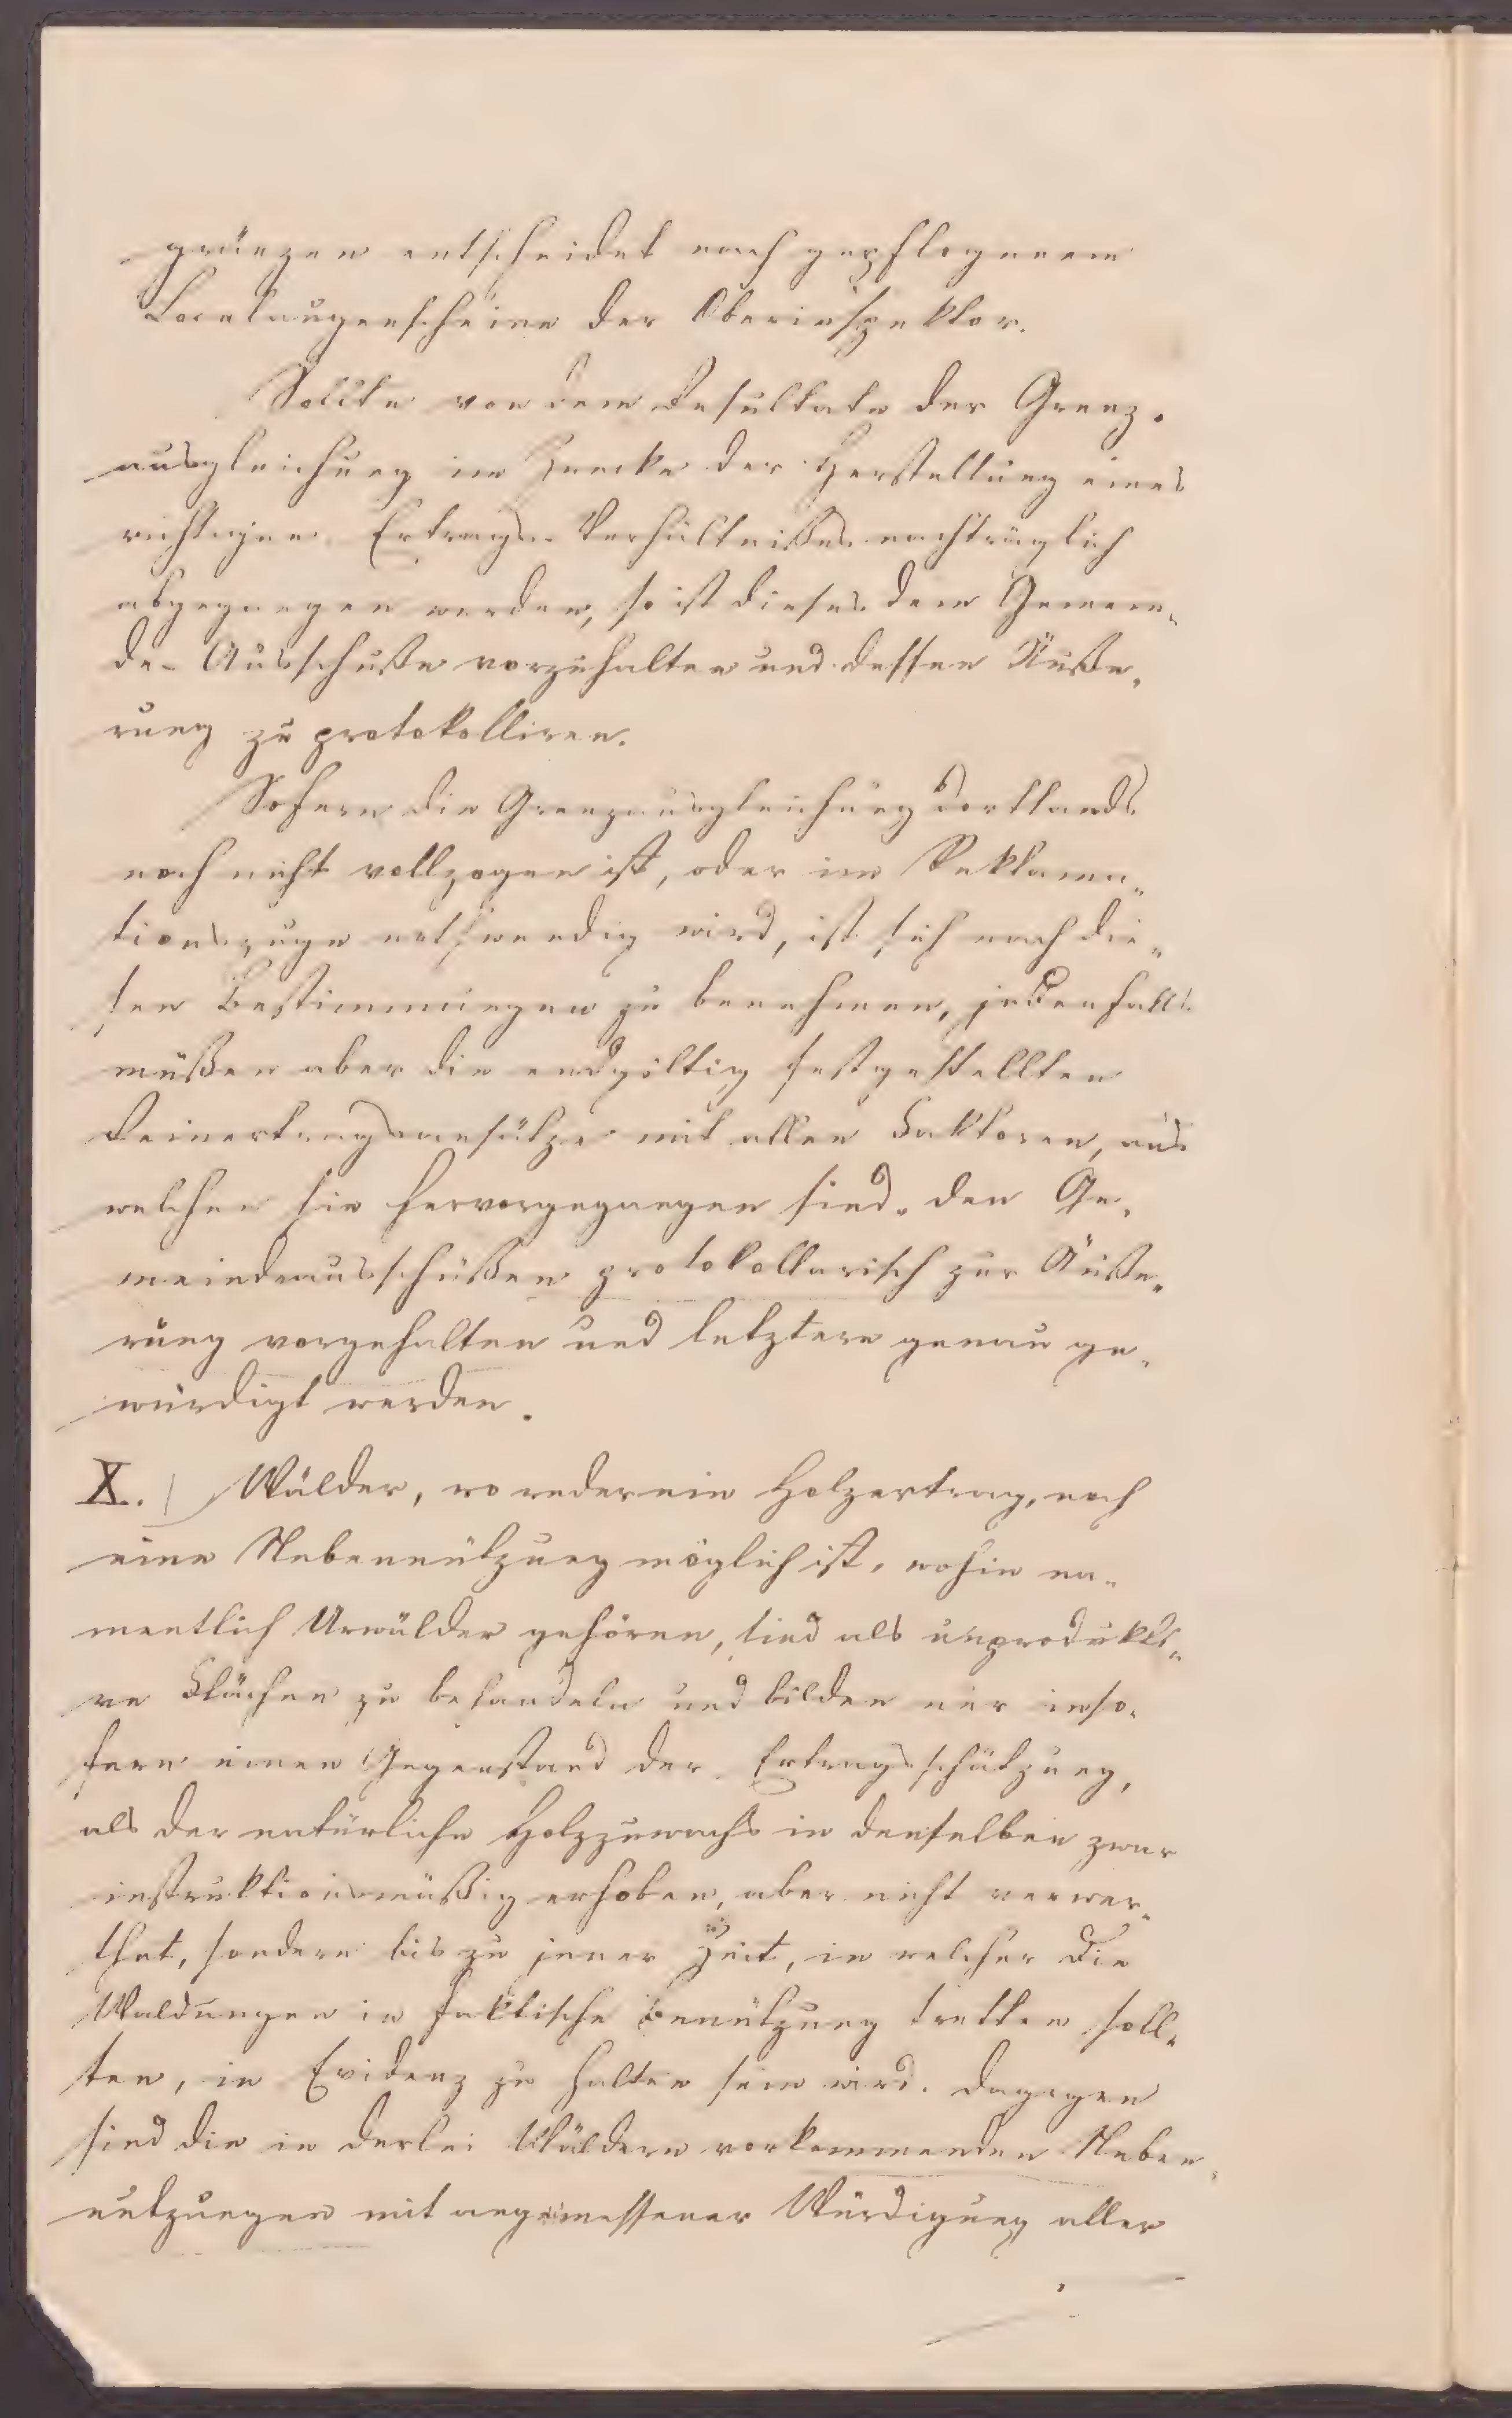 gränzen entscheidet nach gepflogenem
Localaugenscheine der Oberinspektor.
Sollte von dem Resultate der Grenz-
ausgleichung im Zwecke der Herstellung eines
richtigen Ertrags-Verhältnißes nachträglich
abgegangen werden, so ist dieses dem Gemein-
de-Ausschuße vorzuhalten und dessen Äuße-
rung zu protokolliren.
Sofern die Grenzausgleichung dortlands
noch nicht vollzogen ist, oder im Reklama-
tionszuge nothwendig wird, ist sich nach die-
sen Bestimmungen zu benehmen, jedenfalls
müßen aber die endgültig festgestellten
Reinertragsansätze mit allen Faktoren, aus
welchen sie hervorgegangen sind, den Ge-
meindeausschüßen protokollarisch zur Äuße-
rung vorgehalten und letztere genau ge-
würdigt werden.
X.) Wälder, wo weder ein Holzertrag, noch
eine Nebennützung möglich ist, wohin na-
mentlich Urwälder gehören, sind als unprodukti-
ve Flächen zu behandeln und bilden nur inso-
fern einen Gegenstand der Ertragsschätzung,
als der natürliche Holzzuwachs in denselben zwar
instruktionsmäßig erhoben, aber nicht verwer-
thet, sondern bis zu jener Zeit, in welcher die
Waldungen in faktische Benützung tretten soll-
ten, in Evidenz zu halten sein wird. Dagegen
sind die in derlei Wäldern vorkommenden Neben-
nutzungen mit angemessener Würdigung aller